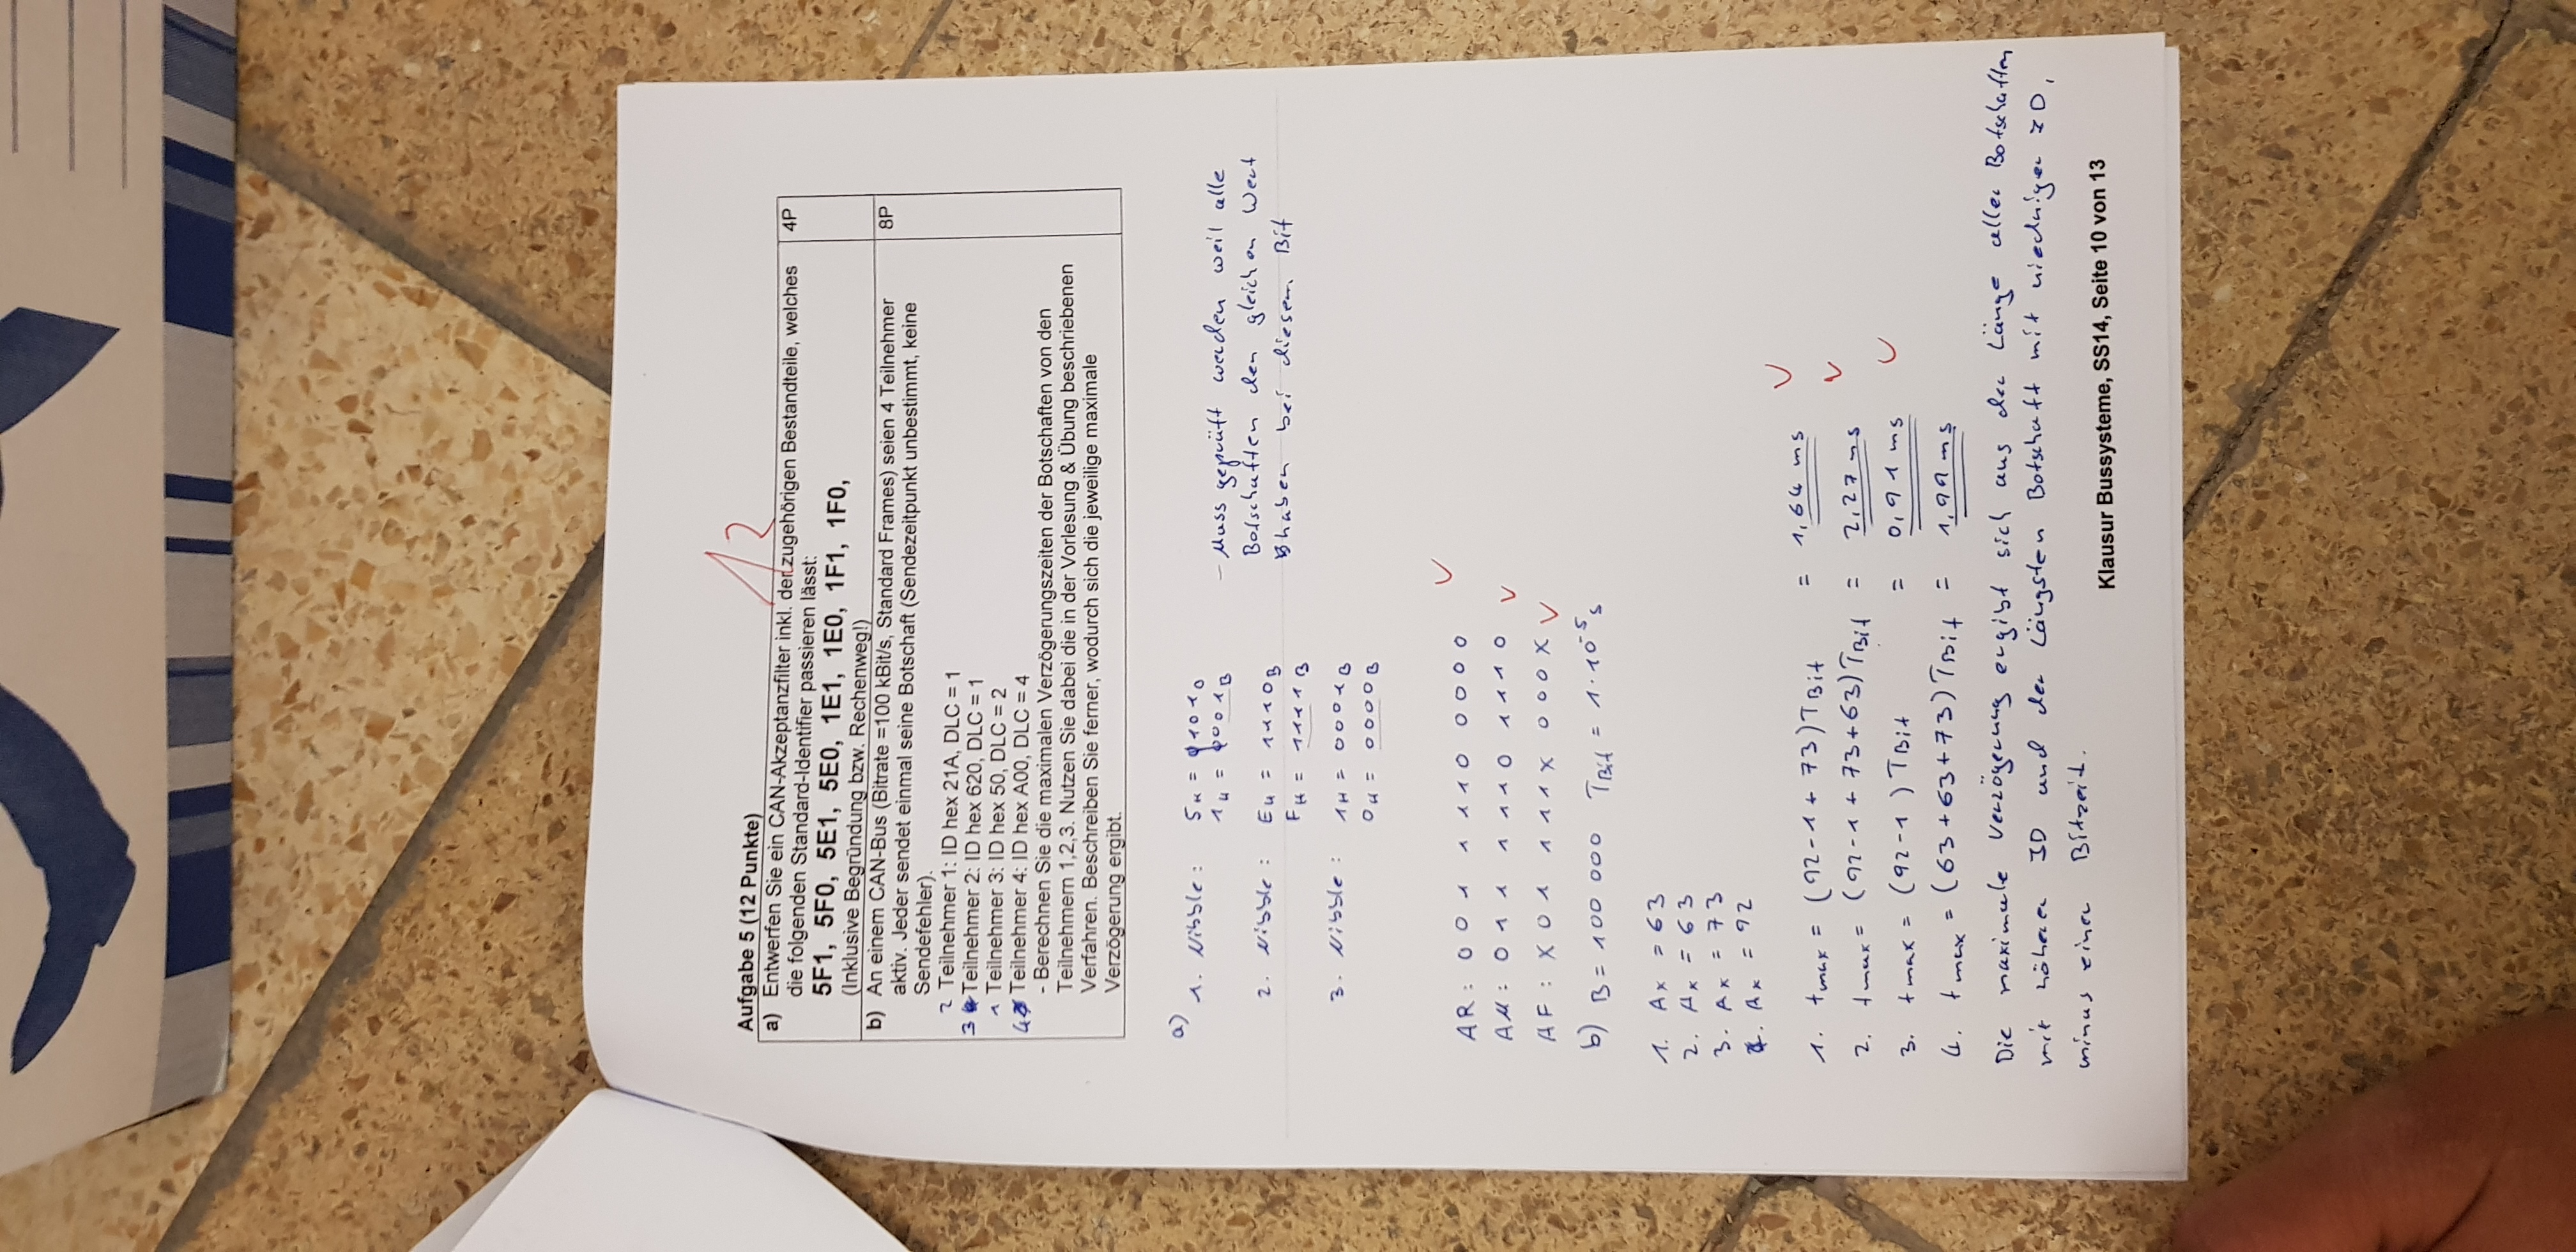 12
Aufgabe 5 (12 Punkte)
a) Entwerfen Sie ein CAN-Akzeptanzfilter inkl. der zugehörigen Bestandteile, welches 4P
die folgenden Standard-Identifier passieren lässt:
5F1, 5F0, 5E1, 5E0, 1E1, 1E0, 1F1, 1F0,
(Inklusive Begründung bzw. Rechenweg!)
b) An einem CAN-Bus (Bitrate =100 kBit/s, Standard Frames) seien 4 Teilnehmer 8P
aktiv. Jeder sendet einmal seine Botschaft (Sendezeitpunkt unbestimmt, keine
Sendefehler).
2 Teilnehmer 1: ID hex 21A, DLC = 1
3 Teilnehmer 2: ID hex 620, DLC = 1
1 Teilnehmer 3: ID hex 50, DLC = 2
4 Teilnehmer 4: ID hex A00, DLC = 4
- Berechnen Sie die maximalen Verzögerungszeiten der Botschaften von den
Teilnehmern 1,2,3. Nutzen Sie dabei die in der Vorlesung & Übung beschriebenen
Verfahren. Beschreiben Sie ferner, wodurch sich die jeweilige maximale
Verzögerung ergibt.
a) 1. Nibble: 5H =
1H = 001B
– Muss geprüft werden weil alle
Botschaften den gleichen Wert
haben bei diesem Bit
2. Nibble: EH = 1110B
FH = 1111B
3. Nibble: 1H = 0001B
0H = 0000B
AR: 0 0 1 1 1 1 0 0 0 0 0
AM: 0 1 1 1 1 1 0 1 1 1 0
AF: X 0 1 1 1 1 X 0 0 0 X
b) B = 100 000 TBit = 1·10⁻⁵ s
1. Ax = 63
2. Ax = 63
3. Ax = 73
4. Ax = 92
1. tmax = (92-1+73)TBit = 1,64 ms
2. tmax = (92-1+73+63)TBit = 2,27 ms
3. tmax = (92-1)TBit = 0,91 ms
4. tmax = (63+63+73)TBit = 1,99 ms
Die maximale Verzögerung ergibt sich aus der Länge aller Botschaften
mit höherer ID und der Längsten Botschaft mit niedriger ID,
minus einer Bitzeit.
Klausur Bussysteme, SS14, Seite 10 von 13